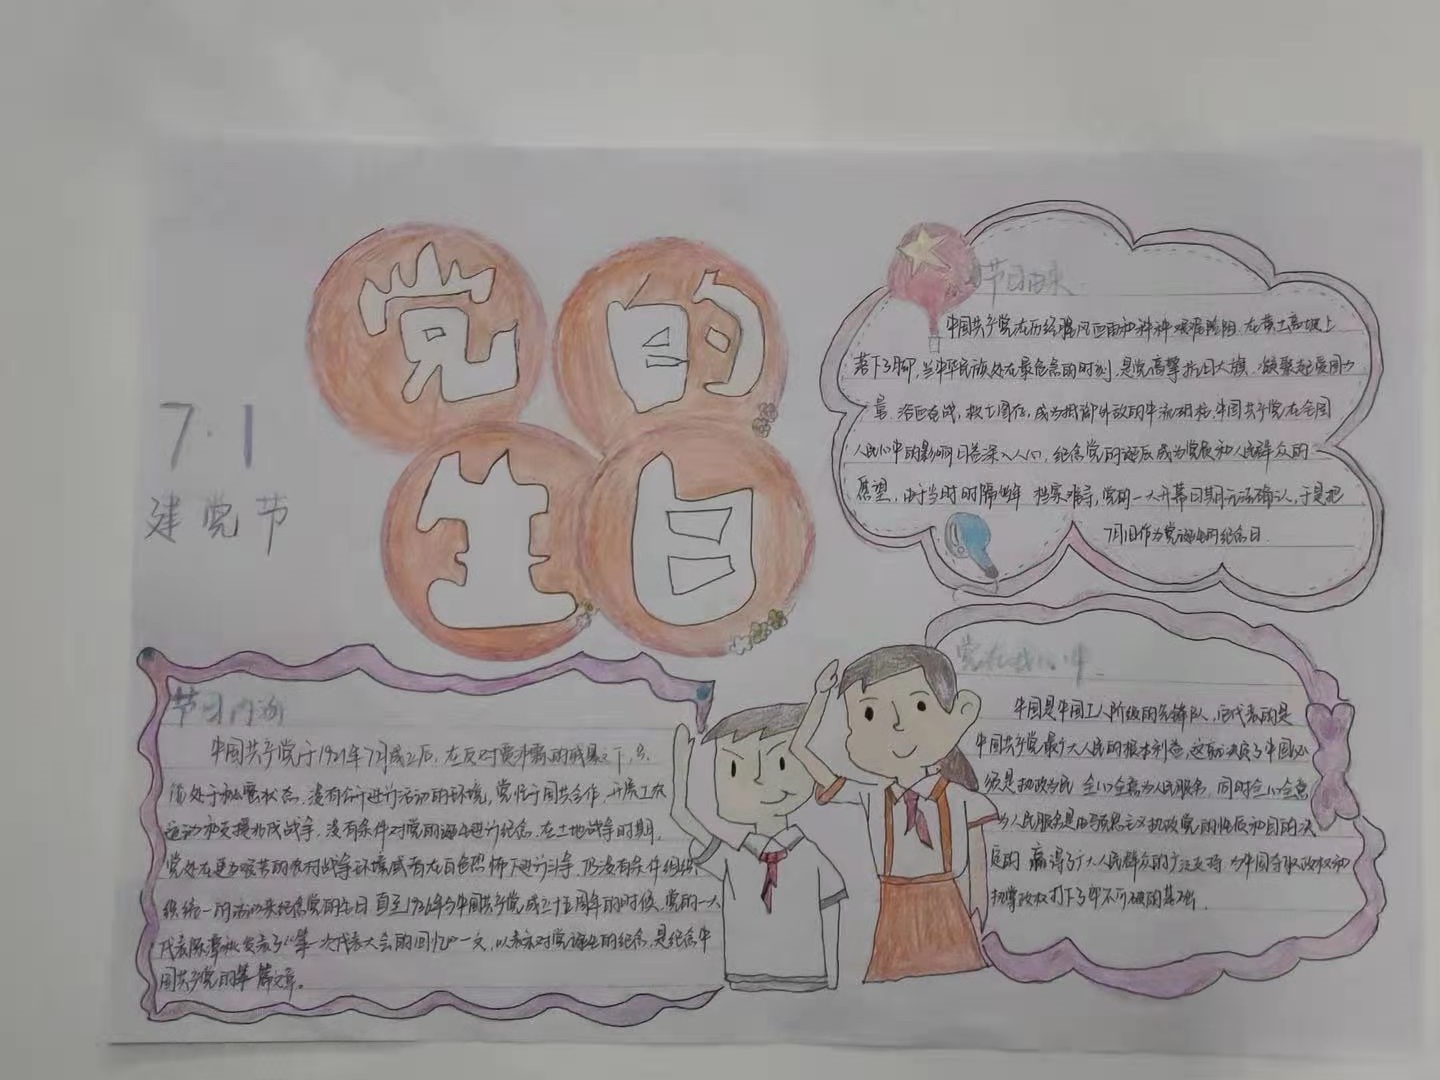 党的
生日
7.1
建党节
节日由来
中国共产党在历经腥风血雨和种种艰难险阻.在黄土高坡上
落下了脚,当中华民族处在最危急的时刻,是党高擎抗日大旗.凝聚起爱国力
量.浴血奋战,救亡图存,成为抵御外敌的中流砥柱.中国共产党在全国
人民心中的影响日益深入人心,纪念党的诞辰成为党员和人民群众的
愿望,由于当时时隔 年 档案难寻,党的一大开幕日期无法确认,于是把
7月1日作为党诞生的纪念日.
节日内涵
中国共产党于1921年7月成立后.在反对 的 下,
处于 状态.没有 进行活动的环境,党忙于国共合作,开展工农
运动和支援北伐战争,没有条件对党的诞生进行纪念.在土地战争时期,
党处在 的农村战争环境或者在白色恐怖下进行斗争.仍没有条件组织
统一的活动来纪念党的生日 直至1936年 中国共产党成立十五周年的时候.党的一大
代表陈潭秋发表了“第一次代表大会的回忆”一文,以表示对党诞生的纪念,是纪念中
国共产党的第 篇文章。
党在我心中
中国是中国工人阶级的先锋队,它代表的是
中国共产党最广大人民的根本利益.这就决定了中国必
须是执政为民 全心全意为人民服务,同时全心全意
为人民服务是由马克思主义执政党的性质和目的决
定的 赢得了广大人民群众的广泛支持.为中国夺取政权和
执掌政权打下了牢不可破的基础.